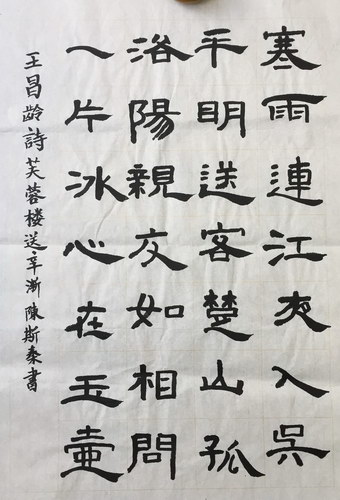 寒雨連江夜入吳
平明送客楚山孤
洛陽親友如相問
一片冰心在玉壷
王昌龄詩芙蓉楼送辛漸陳斯桑書